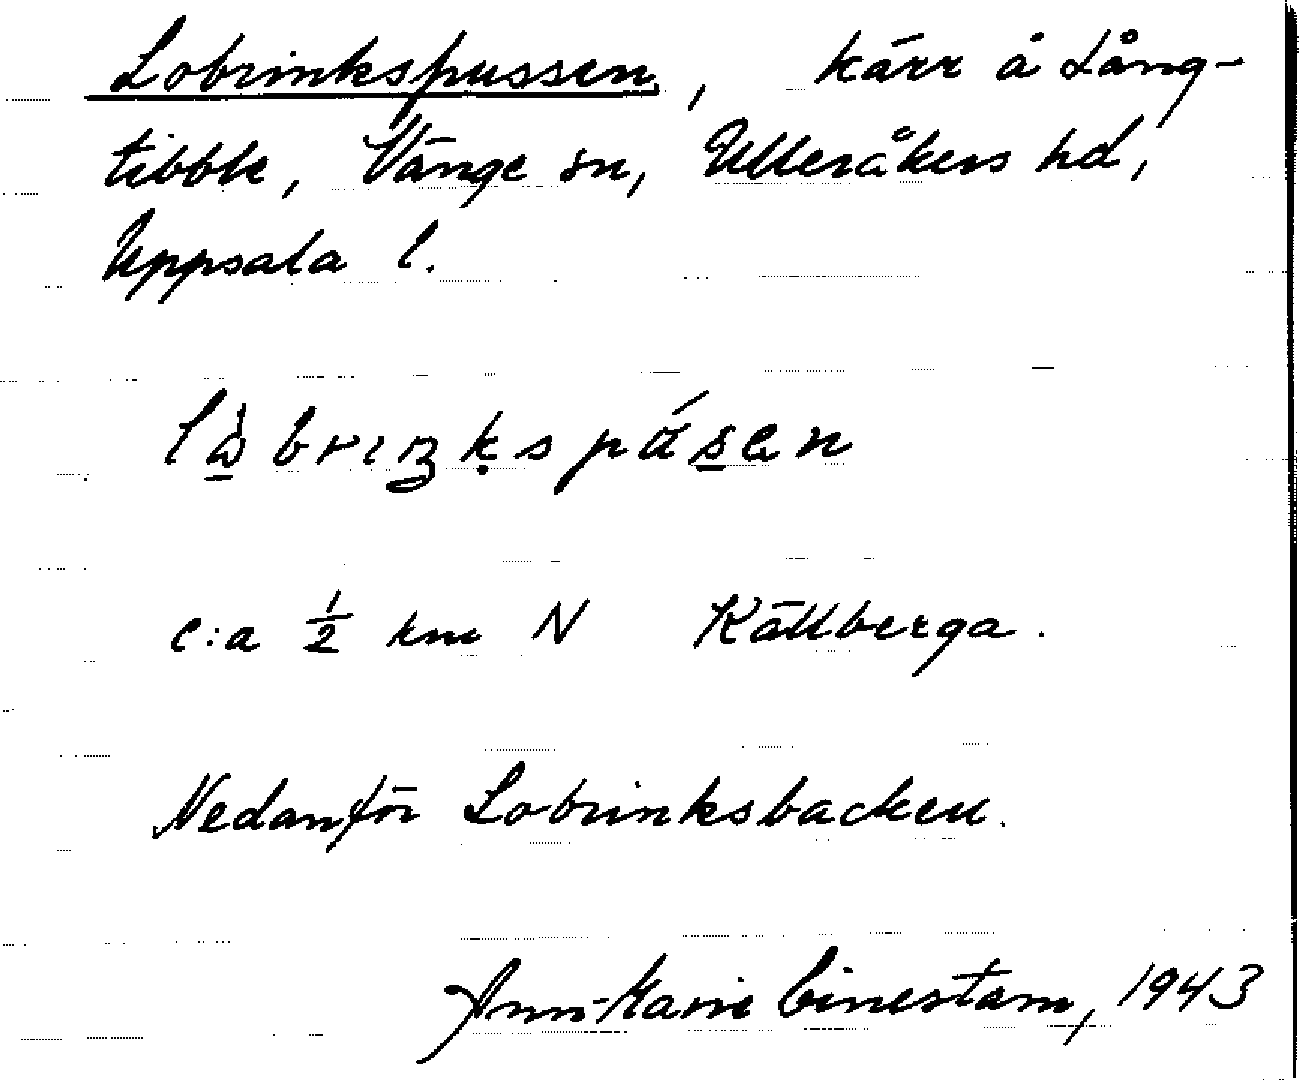 Lobrinkspussen, kärr å Lång-
tibble, Vänge sn, Ulleråkers hd,
Uppsala l.
c:a 1/2 km N Källberga.
Nedanför Lobrinksbacken.
Ann-Marie Einestam, 1943